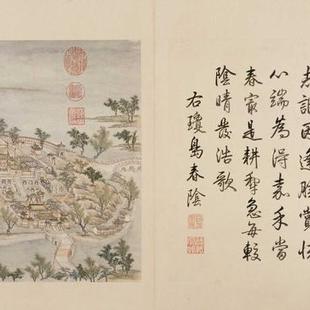 志詎因逢勝賞悅
心端為得嘉禾當
春最是耕犁急每較
陰晴發浩歌
右瓊島春陰